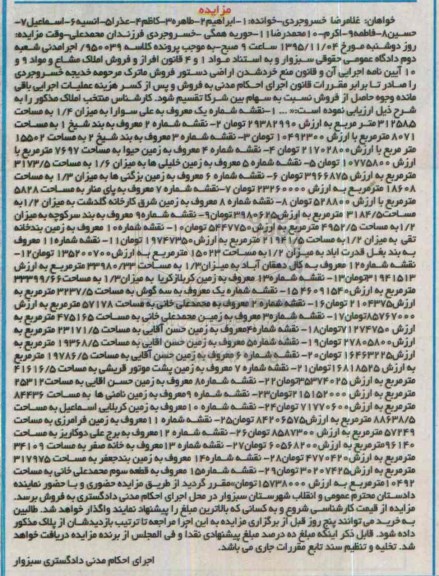 مزایده
خواهان: غلامرضا خسروجردی-خوانده: ۱-ابراهیم ۲-طاهره ۳-کاظم ۴-عذرا ۵-انسیه ۶-اسماعیل ۷-
حسین ۸-فاطمه ۹-اکرم ۱۰-محمدرضا ۱۱-حوریه همگی -خسروجردی فرزندان محمدعلی-وقت مزایده:
روز دوشنبه مورخ ۱۳۹۵/۱۱/۰۴ ساعت ۹ صبح-به موجب پرونده کلاسه ۹۵۰۰۳۹/ اجرامدنی شعبه
دوم دادگاه عمومی حقوقی سبزوار و به استناد مواد ۱ و ۴ قانون افراز و فروش املاک مشاع و مواد ۹ و
۱۰ آیین نامه اجرایی آن و قانون منع خردشدن اراضی دستور فروش ماترک مرحومه خدیجه خسروجردی
را صادر تا برابر مقررات قانون اجرای احکام مدنی به فروش و پس از کسر هزینه عملیات اجرایی باقی
مانده وجوه حاصل از فروش نسبت به سهام بین شرکا تقسیم شود. کارشناس منتخب املاک مذکور را به
شرح ذیل ارزیابی نموده است:« ... ۱-نقشه شماره یک معروف به علی سوار با میزان ۱/۴ به مساحت
۳۱۲۵۸۵ متر مربع به ارزش ۲۹۳۸۲۹۹۰ تومان ۲- نقشه شماره ۲ معروف به بند شیخ ۱ به مساحت
۸۰۷۱ مترمربع به ارزش ۱۰۴۹۲۳۰۰ تومان ۳- نقشه شماره ۳ معروف به بند شیخ ۲ به مساحت ۱۵۵۰۲
مترمربع به ارزش ۲۱۷۰۲۸۰۰ تومان ۴-نقشه شماره ۴ معروف به زمین حیوا به مساحت ۷۶۹۷ مترمربع با
ارزش ۱۰۷۷۵۸۰۰ تومان ۵- نقشه شماره ۵ معروف به زمین خلیلی ها به میزان ۱/۶ به مساحت ۳۱۷۳/۵
مترمربع به ارزش ۳۹۶۶۸۷۵ تومان ۶- نقشه شماره ۶ معروف به زمین بزگنی ها به میزان ۱/۳ به مساحت
۱۸۶۰۸ مترمربع به ارزش ۲۳۲۶۰۰۰۰ تومان ۷-نقشه شماره ۷ معروف به پای منار به مساحت ۵۸۲۸
مترمربع به ارزش ۵۲۸۸۰۰ تومان ۸- نقشه شماره ۸ معروف به زمین شرق کارخانه گلدشت به میزان ۱/۲ به
مساحت ۳۱۸۴/۵ مترمربع به ارزش ۳۹۸۰۶۲۵ تومان ۹- نقشه شماره ۹ معروف به بند سرکوچه به میزان
۱/۲ به مساحت ۴۹۵۲/۵ مترمربع به ارزش ۵۴۴۷۷۵۰ تومان ۱۰- نقشه شماره ۱۰ معروف به زمین بندخانه
تقی به میزان ۱/۲ به مساحت ۲۱۹۴۱/۵ مترمربع به ارزش ۱۹۷۴۷۳۵۰ تومان ۱۱- نقشه شماره ۱۱ معروف
به بند بغل قدرت آباد به میزان ۱/۲ به مساحت ۱۵۰۲۳ مترمربع به ارزش ۱۳۵۲۰۷۰۰ تومان ۱۲-
نقشه شماره ۱۲ معروف به کال دهقان آباد به میزان ۱/۳ به مساحت ۳۳۹۸۰/۳۳ مترمربع به ارزش
۳۱۹۴۱۵۱۳ تومان ۱۳- نقشه شماره ۱۳ معروف به زمین کربلازکریا به میزان ۱/۳ به مساحت ۳۳۳۹۹/۶۶
مترمربع به ارزش ۴۶۰۹۱۵۴۰ تومان ۱۵- نقشه شماره یک معروف به سه گوش به مساحت ۳۲۳۷/۵ مترمربع
به ارزش ۲۱۰۴۳۷۵ تومان ۱۶- نقشه شماره ۲ معروف به محمدعلی خانی به مساحت ۵۷۱۷۸ مترمربع به
ارزش ۸۵۷۶۷۰۰۰ تومان ۱۷- نقشه شماره ۳ معروف به زمین محمدعلی خانی به مساحت ۴۷۵۱۶۵ مترمربع
به ارزش ۷۱۲۷۴۷۵۰ تومان ۱۸- نقشه شماره ۴ معروف به زمین حسن آقایی به مساحت ۲۳۱۷۱/۵ مترمربع به
ارزش ۲۷۸۰۵۸۰۰ تومان ۱۹- نقشه شماره ۵ معروف به زمین حسن آقایی به مساحت ۱۹۳۶۸/۵ مترمربع به
ارزش ۱۶۴۶۳۲۲۵ تومان ۲۰- نقشه شماره ۶ معروف به زمین حسن آقایی به مساحت ۱۹۷۸۶/۵ مترمربع به
ارزش ۱۶۸۱۸۵۲۵ تومان ۲۱- نقشه شماره ۷ معروف به زمین پشت موتور قریشی به مساحت ۴۱۶۱۶/۵
مترمربع به ارزش ۳۵۳۷۴۰۲۵ تومان ۲۲- نقشه شماره ۸ معروف به زمین حسن آقایی به مساحت ۲۵۳۱۲
مترمربع به ارزش ۲۱۵۱۵۲۰۰۰ تومان ۲۳-نقشه شماره ۹ معروف به زمین نامنی ها به مساحت ۸۴۴۳۶
مترمربع به ارزش ۷۱۷۷۰۶۰۰ تومان ۲۴- نقشه شماره ۱۰ معروف به زمین کربلایی اسماعیل به مساحت
۸۸۶۳۸/۵ مترمربع به ارزش ۸۴۲۰۶۵۷۵ تومان ۲۵- نقشه شماره ۱۱ معروف به زمین فرامرزی به مساحت
۵۷۲۴۹ مترمربع به ارزش ۸۵۸۷۳۵۰۰ تومان ۲۶- نقشه شماره ۱۲ معروف به برج علی دوکاریز به مساحت
۹۶۱۴۰ مترمربع به ارزش ۶۰۵۶۸۲۰۰ تومان ۲۷-نقشه شماره ۱۳ معروف به خانه صفر به مساحت ۳۴۱۰۹
مترمربع به ارزش ۴۷۷۰۴۲۰ تومان ۲۸- نقشه شماره ۱۴ معروف به زمین بندجعفر به مساحت ۳۱۷۹۷۵
مترمربع به ارزش ۳۰۲۰۷۴۲۵ تومان ۲۹- نقشه شماره ۱۵ معروف به قطعه سوم محمدعلی خانی به مساحت
۱۰۴۹۲ مترمربع به ارزش ۱۵۷۳۸۰۰۰ تومان»مقرر گردید از طریق مزایده حضوری و با حضور نماینده
دادستان محترم عمومی و انقلاب شهرستان سبزوار در محل اجرای احکام مدنی دادگستری به فروش برسد.
مزایده از قیمت کارشناسی شروع و به کسانی که بالاترین مبلغ را پیشنهاد نمایند واگذار خواهد شد. طالبین
به خرید می توانند پنج روز قبل از برگزاری مزایده به این اجرا مراجعه تا ترتیب بازدیدشان از پلاک مذکور
داده شود. قابل ذکر اینکه مبلغ ده درصد مبلغ پیشنهادی نقدا و فی المجلس از برنده مزایده دریافت خواهد
شد. تخلیه و تنظیم سند تابع مقررات جاری می باشد.
اجرای احکام مدنی دادگستری سبزوار